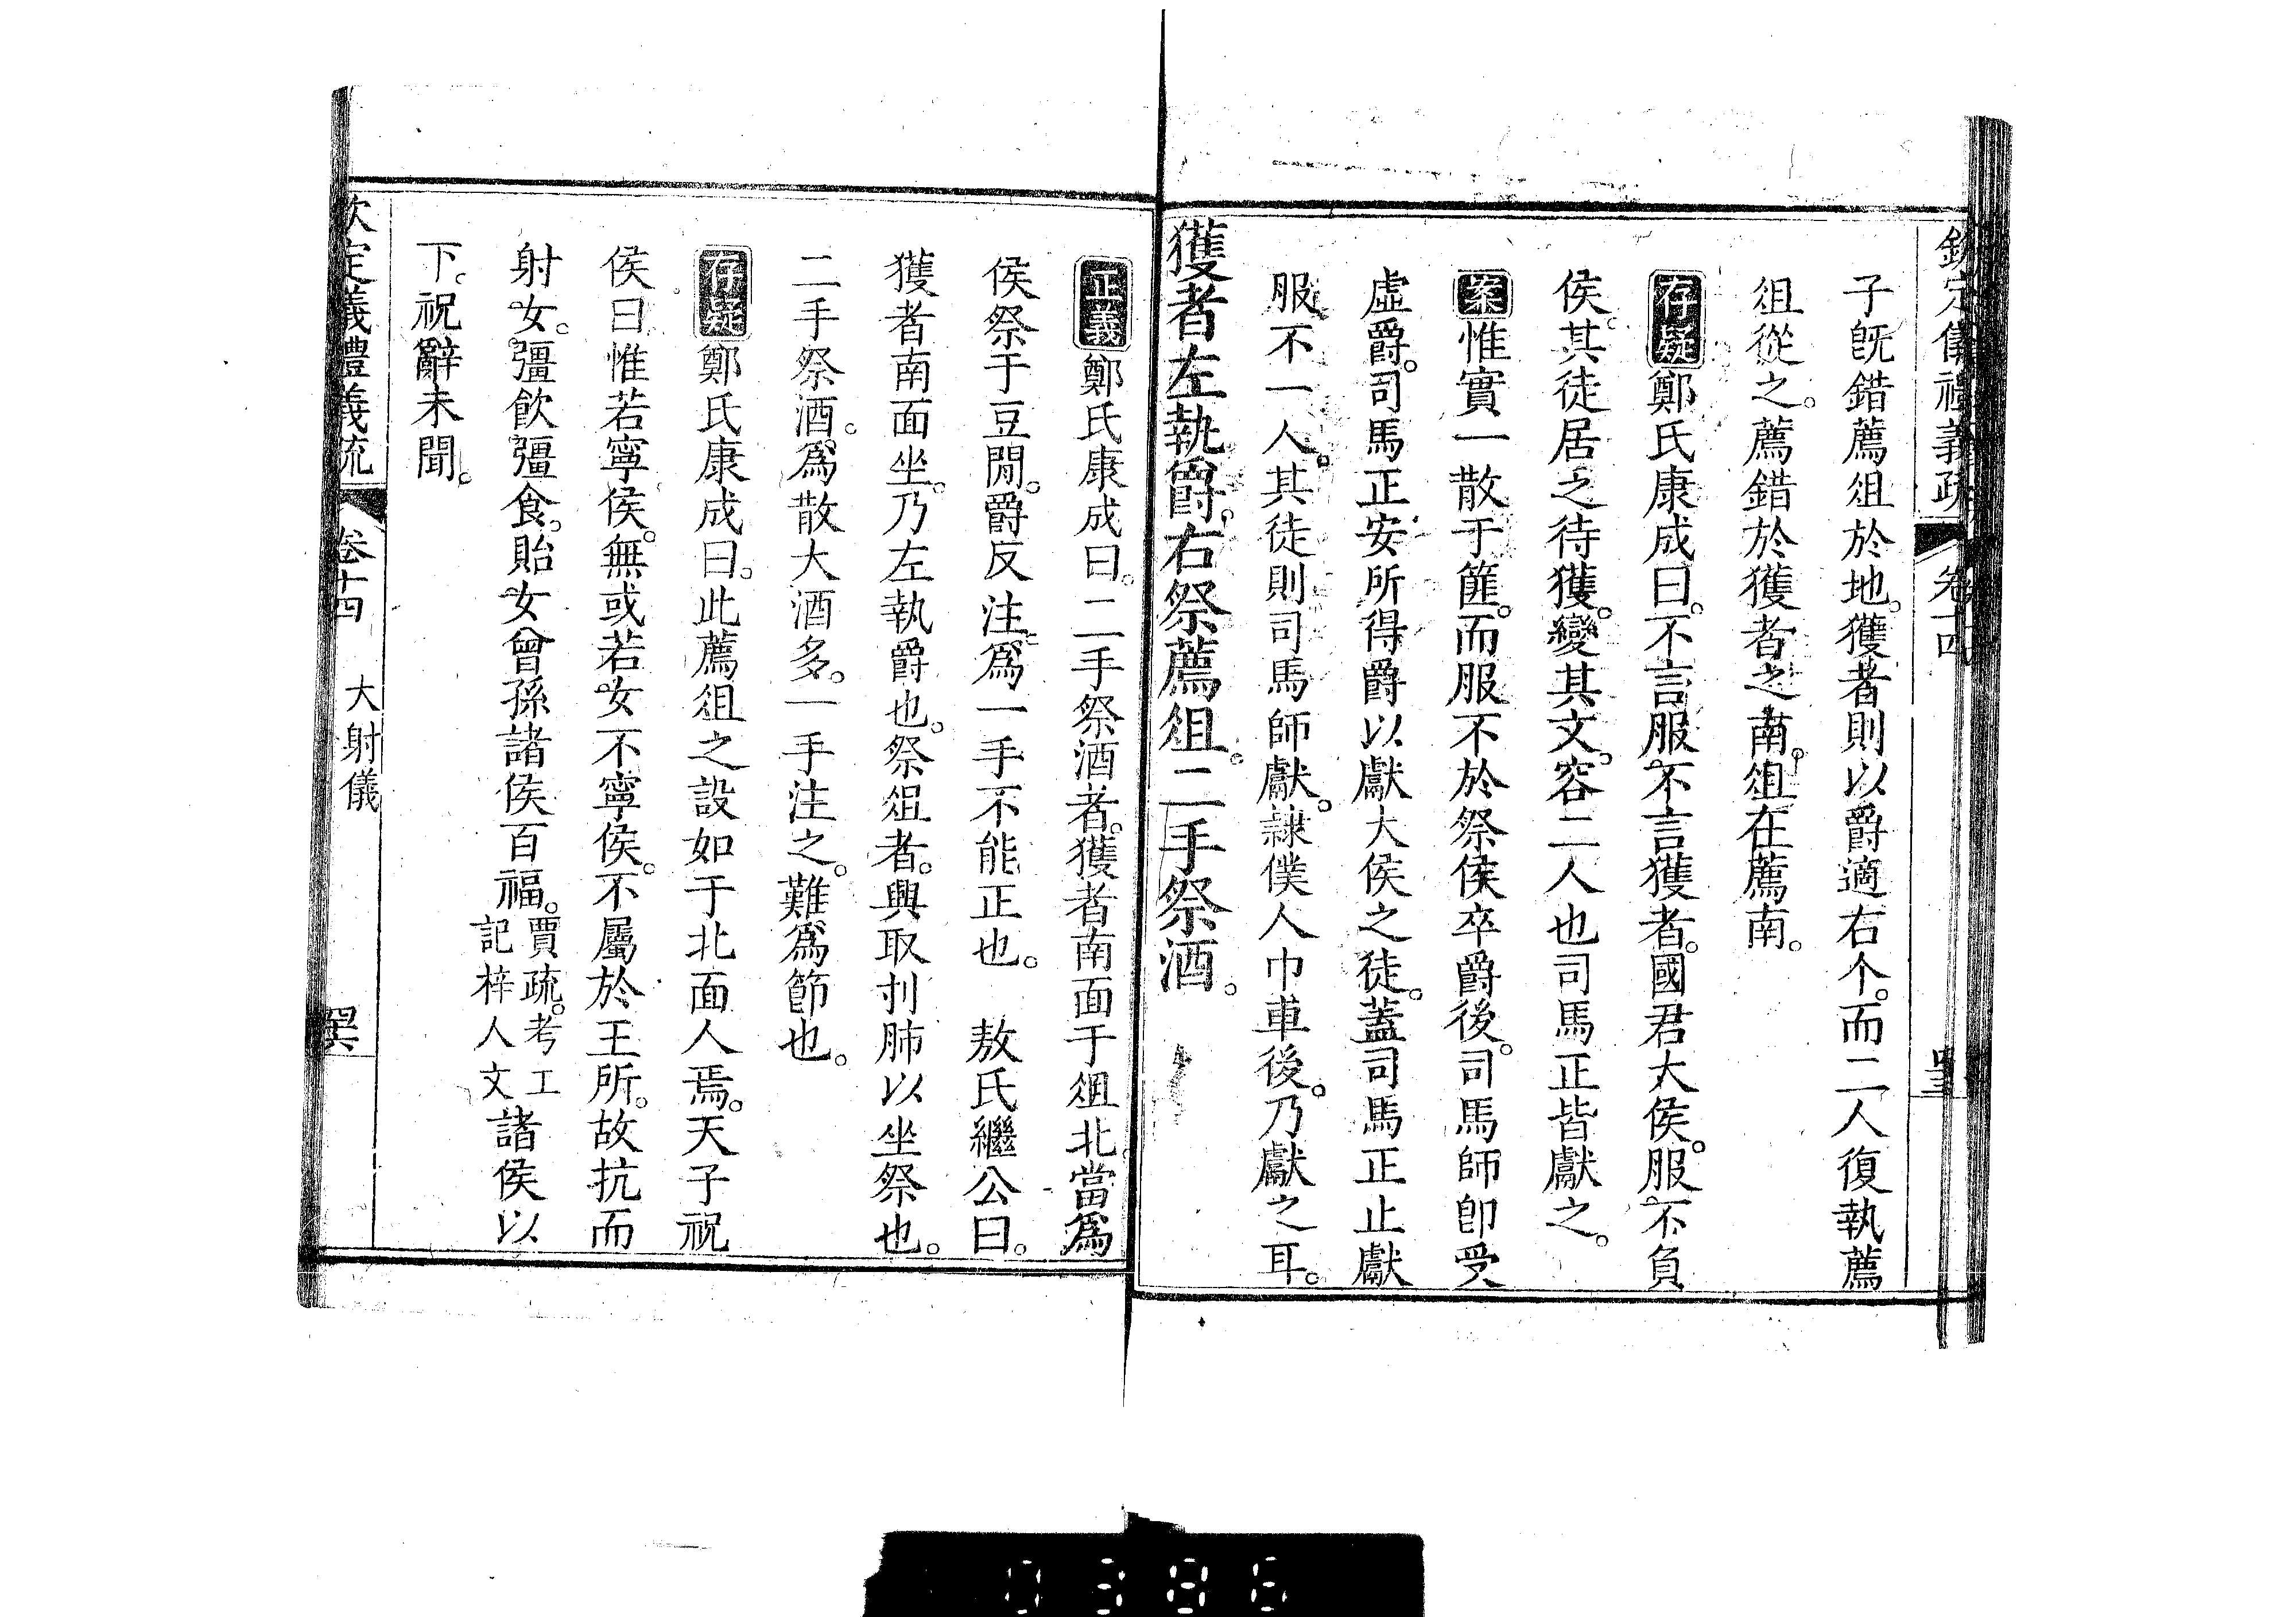 欽定儀禮義疏 卷十四
子旣錯薦俎於地。獲者則以爵適右个。而二人復執薦
俎從之。薦錯於獲者之南。俎在薦南。
存疑鄭氏康成曰。不言服不言獲者。國君大侯。服不負
侯。其徒居乏待獲。變其文。容二人也司馬正皆獻之。
案惟實一散于篚。而服不於祭侯卒爵後。司馬師卽受
虛爵。司馬正安所得爵以獻大侯之徒。蓋司馬正止獻
服不一人。其徒則司馬師獻。隷僕人巾車後。乃獻之耳。
獲者左執爵。右祭薦俎。二手祭酒。
正義鄭氏康成曰。二手祭酒者。獲者南面于俎北。當爲
侯祭于豆閒。爵反注。爲一手不能正也。 敖氏繼公曰。
獲者南面坐。乃左執爵也。祭俎者。興取刌肺以坐祭也。
二手祭酒。爲散大酒多。一手注之。難爲節也。
存疑鄭氏康成曰。此薦俎之設如于北面人焉。天子祝
侯曰惟若寧侯。無或若女不寧侯。不屬於王所。故抗而
射女。彊飲彊食。貽女曾孫諸侯百福。賈疏。考工記梓人文諸侯以
下。祝辭未聞。
欽定儀禮義疏 卷十四 大射儀